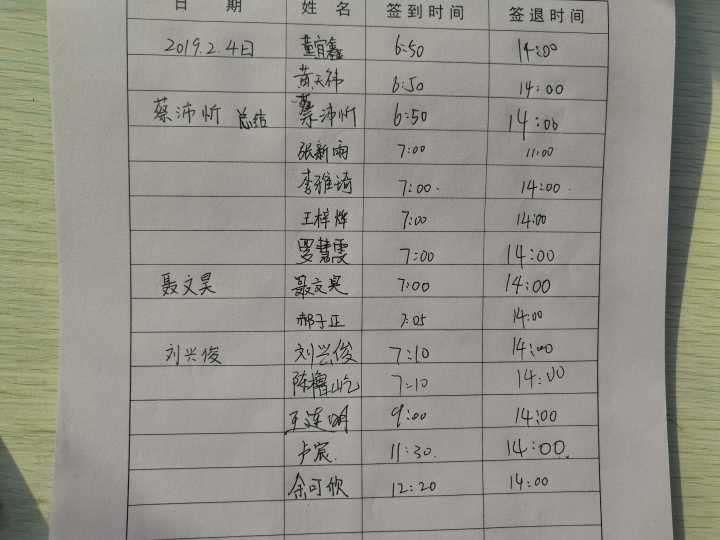 日 期 姓 名 签到时间 签退时间
2019.2.4日 董宜鑫 6:50 14:00
黄天祎 6:50 14:00
蔡沛忻 总结 蔡沛忻 6:50 14:00
张新雨 7:00 11:00
李雅琦 7:00. 14:00.
王梓烨 7:00 14:00
罗慧雯 7:00 14:00
聂文昊 聂文昊 7:00 14:00
郝于正 7:05 14:00
刘兴俊 刘兴俊 7:10 14:00
陈 屹 7:10 14:00
王连明 9:00 14:00
卢宸. 11:30. 14:00.
余可欣 12:20 14:00